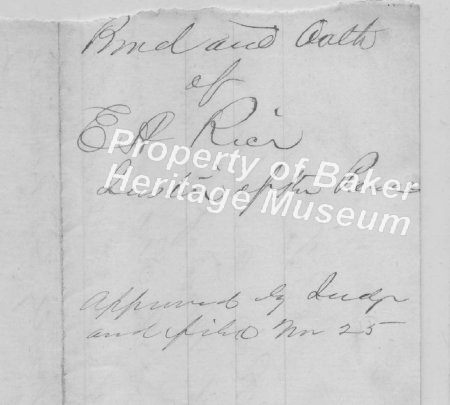 Bond and Oath
of
E A Rice
Justice of the Peace
Property of Baker
Heritage Museum
Approved by Judge
and filed Nov 25